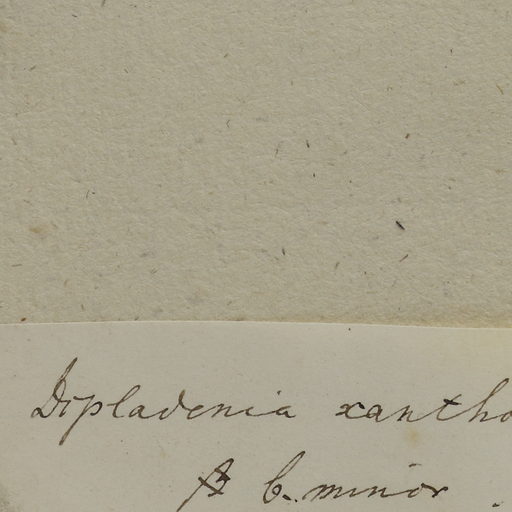 Dipladenia xantho
β b. minor